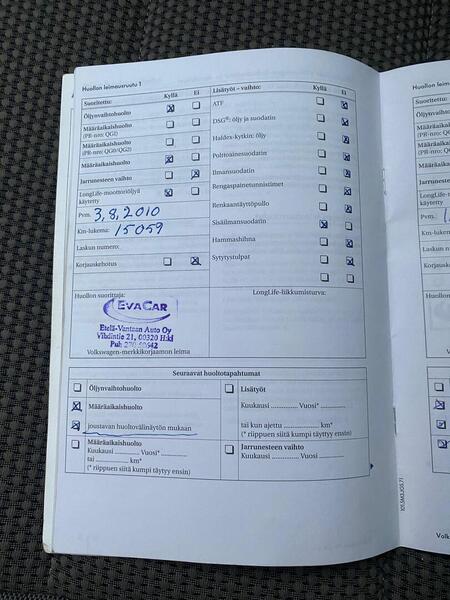 Huollon leimausruutu 1
Suoritettu: Kyllä Ei
Öljynvaihtohuolto
Määräaikaishuolto
(PR-nro: QGI)
Määräaikaishuolto
(PR-nro: QG0/QG2)
Määräaikaishuolto
Jarrunesteen vaihto
LongLife-moottoriöljyä
käytetty
Pvm. 3,8,2010
Km-lukema: 15059
Laskun numero:
Korjauskehotus
Huollon suorittaja:
EVACAR
Etelä-Vantaan Auto Oy
Vihdintie 21, 00320 Hki
Volkswagen-merkkikorjaamon leima
Lisätyöt – vaihto: Kyllä Ei
ATF
DSG®: öljy ja suodatin
Haldex-kytkin: öljy
Polttoainesuodatin
Ilmansuodatin
Rengaspainetunnistimet
Renkaantäyttöpullo
Sisäilmansuodatin
Hammashihna
Sytytystulpat
LongLife-liikkumisturva:
Seuraavat huoltotapahtumat
Öljynvaihtohuolto
Määräaikaishuolto
joustavan huoltovälinäytön mukaan
Määräaikaishuolto
Kuukausi ............. Vuosi* ..............
tai ................ km*
(* riippuen siitä kumpi täytyy ensin)
Lisätyöt
Kuukausi ............. Vuosi* ..............
tai kun ajettu ................ km*
(* riippuen siitä kumpi täytyy ensin)
Jarrunesteen vaihto
Kuukausi ............. Vuosi ..............
Huollon lei
Suoritettu:
Öljynvaihtohu
Määräaikaish
(PR-nro: QGI)
Määräaikaish
(PR-nro: QG0
Määräaikaish
Jarrunesteen
LongLife-moo
käytetty
Pvm.
Km-lukema:
Laskun num
Korjauskeho
Huollon
Volk